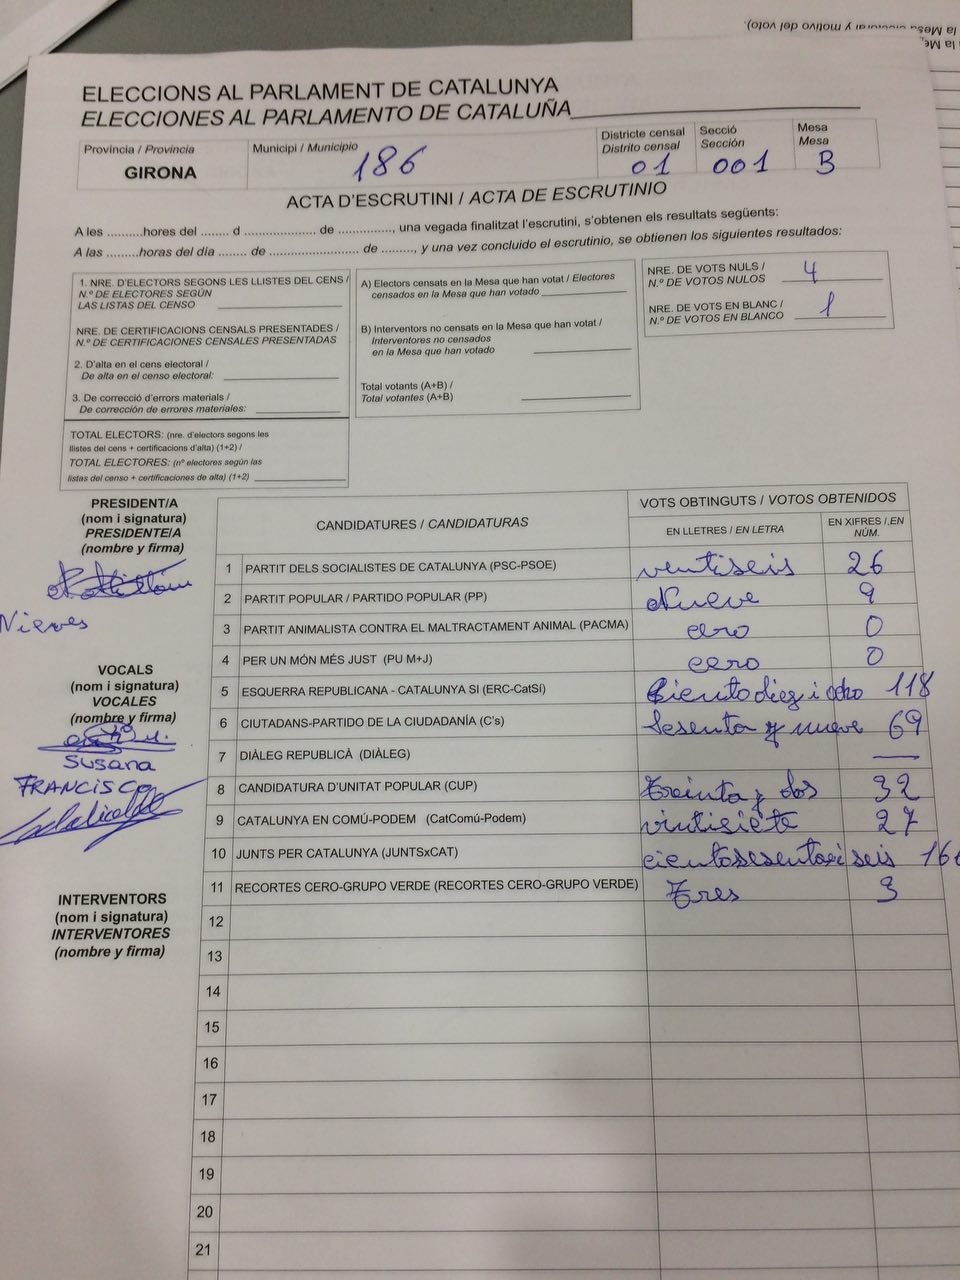 la Mesa electoral y motivo del voto).
ELECCIONS AL PARLAMENT DE CATALUNYA
ELECCIONES AL PARLAMENTO DE CATALUÑA
Província / Provincia
GIRONA
Municipi / Municipio
186
Districte censal
Distrito censal
01
Secció
Sección
001
Mesa
Mesa
B
ACTA D'ESCRUTINI / ACTA DE ESCRUTINIO
A les ..........hores del ........ d ..................... de ..............., una vegada finalitzat l'escrutini, s'obtenen els resultats següents:
A las ..........horas del día ........ de ........................... de .........., y una vez concluido el escrutinio, se obtienen los siguientes resultados:
1. NRE. D'ELECTORS SEGONS LES LLISTES DEL CENS /
N.º DE ELECTORES SEGÚN
LAS LISTAS DEL CENSO
NRE. DE CERTIFICACIONS CENSALS PRESENTADES /
N.º DE CERTIFICACIONES CENSALES PRESENTADAS
2. D'alta en el cens electoral /
De alta en el censo electoral:
3. De correcció d'errors materials /
De corrección de errores materiales:
TOTAL ELECTORS: (nre. d'electors segons les
llistes del cens + certificacions d'alta) (1+2) /
TOTAL ELECTORES: (nº electores según las
listas del censo + certificaciones de alta) (1+2)
A) Electors censats en la Mesa que han votat / Electores
censados en la Mesa que han votado
B) Interventors no censats en la Mesa que han votat /
Interventores no censados
en la Mesa que han votado
Total votants (A+B) /
Total votantes (A+B)
NRE. DE VOTS NULS /
N.º DE VOTOS NULOS
4
NRE. DE VOTS EN BLANC /
N.º DE VOTOS EN BLANCO
1
PRESIDENT/A
(nom i signatura)
PRESIDENTE/A
(nombre y firma)
Nieves
VOCALS
(nom i signatura)
VOCALES
(nombre y firma)
Susana
FRANCISCO
INTERVENTORS
(nom i signatura)
INTERVENTORES
(nombre y firma)
CANDIDATURES / CANDIDATURAS
VOTS OBTINGUTS / VOTOS OBTENIDOS
EN LLETRES / EN LETRA
EN XIFRES / EN
NÚM.
1 PARTIT DELS SOCIALISTES DE CATALUNYA (PSC-PSOE) ventiseis 26
2 PARTIT POPULAR / PARTIDO POPULAR (PP) Nueve 9
3 PARTIT ANIMALISTA CONTRA EL MALTRACTAMENT ANIMAL (PACMA) cero 0
4 PER UN MÓN MÉS JUST (PU M+J) cero 0
5 ESQUERRA REPUBLICANA - CATALUNYA SI (ERC-CatSí) Ciento diez i ocho 118
6 CIUTADANS-PARTIDO DE LA CIUDADANÍA (C's) Sesenta y nueve 69
7 DIÀLEG REPUBLICÀ (DIÀLEG) —
8 CANDIDATURA D'UNITAT POPULAR (CUP) Treinta y dos 32
9 CATALUNYA EN COMÚ-PODEM (CatComú-Podem) vintisiete 27
10 JUNTS PER CATALUNYA (JUNTSxCAT) cientosesentai seis 166
11 RECORTES CERO-GRUPO VERDE (RECORTES CERO-GRUPO VERDE) Tres 3
12
13
14
15
16
17
18
19
20
21